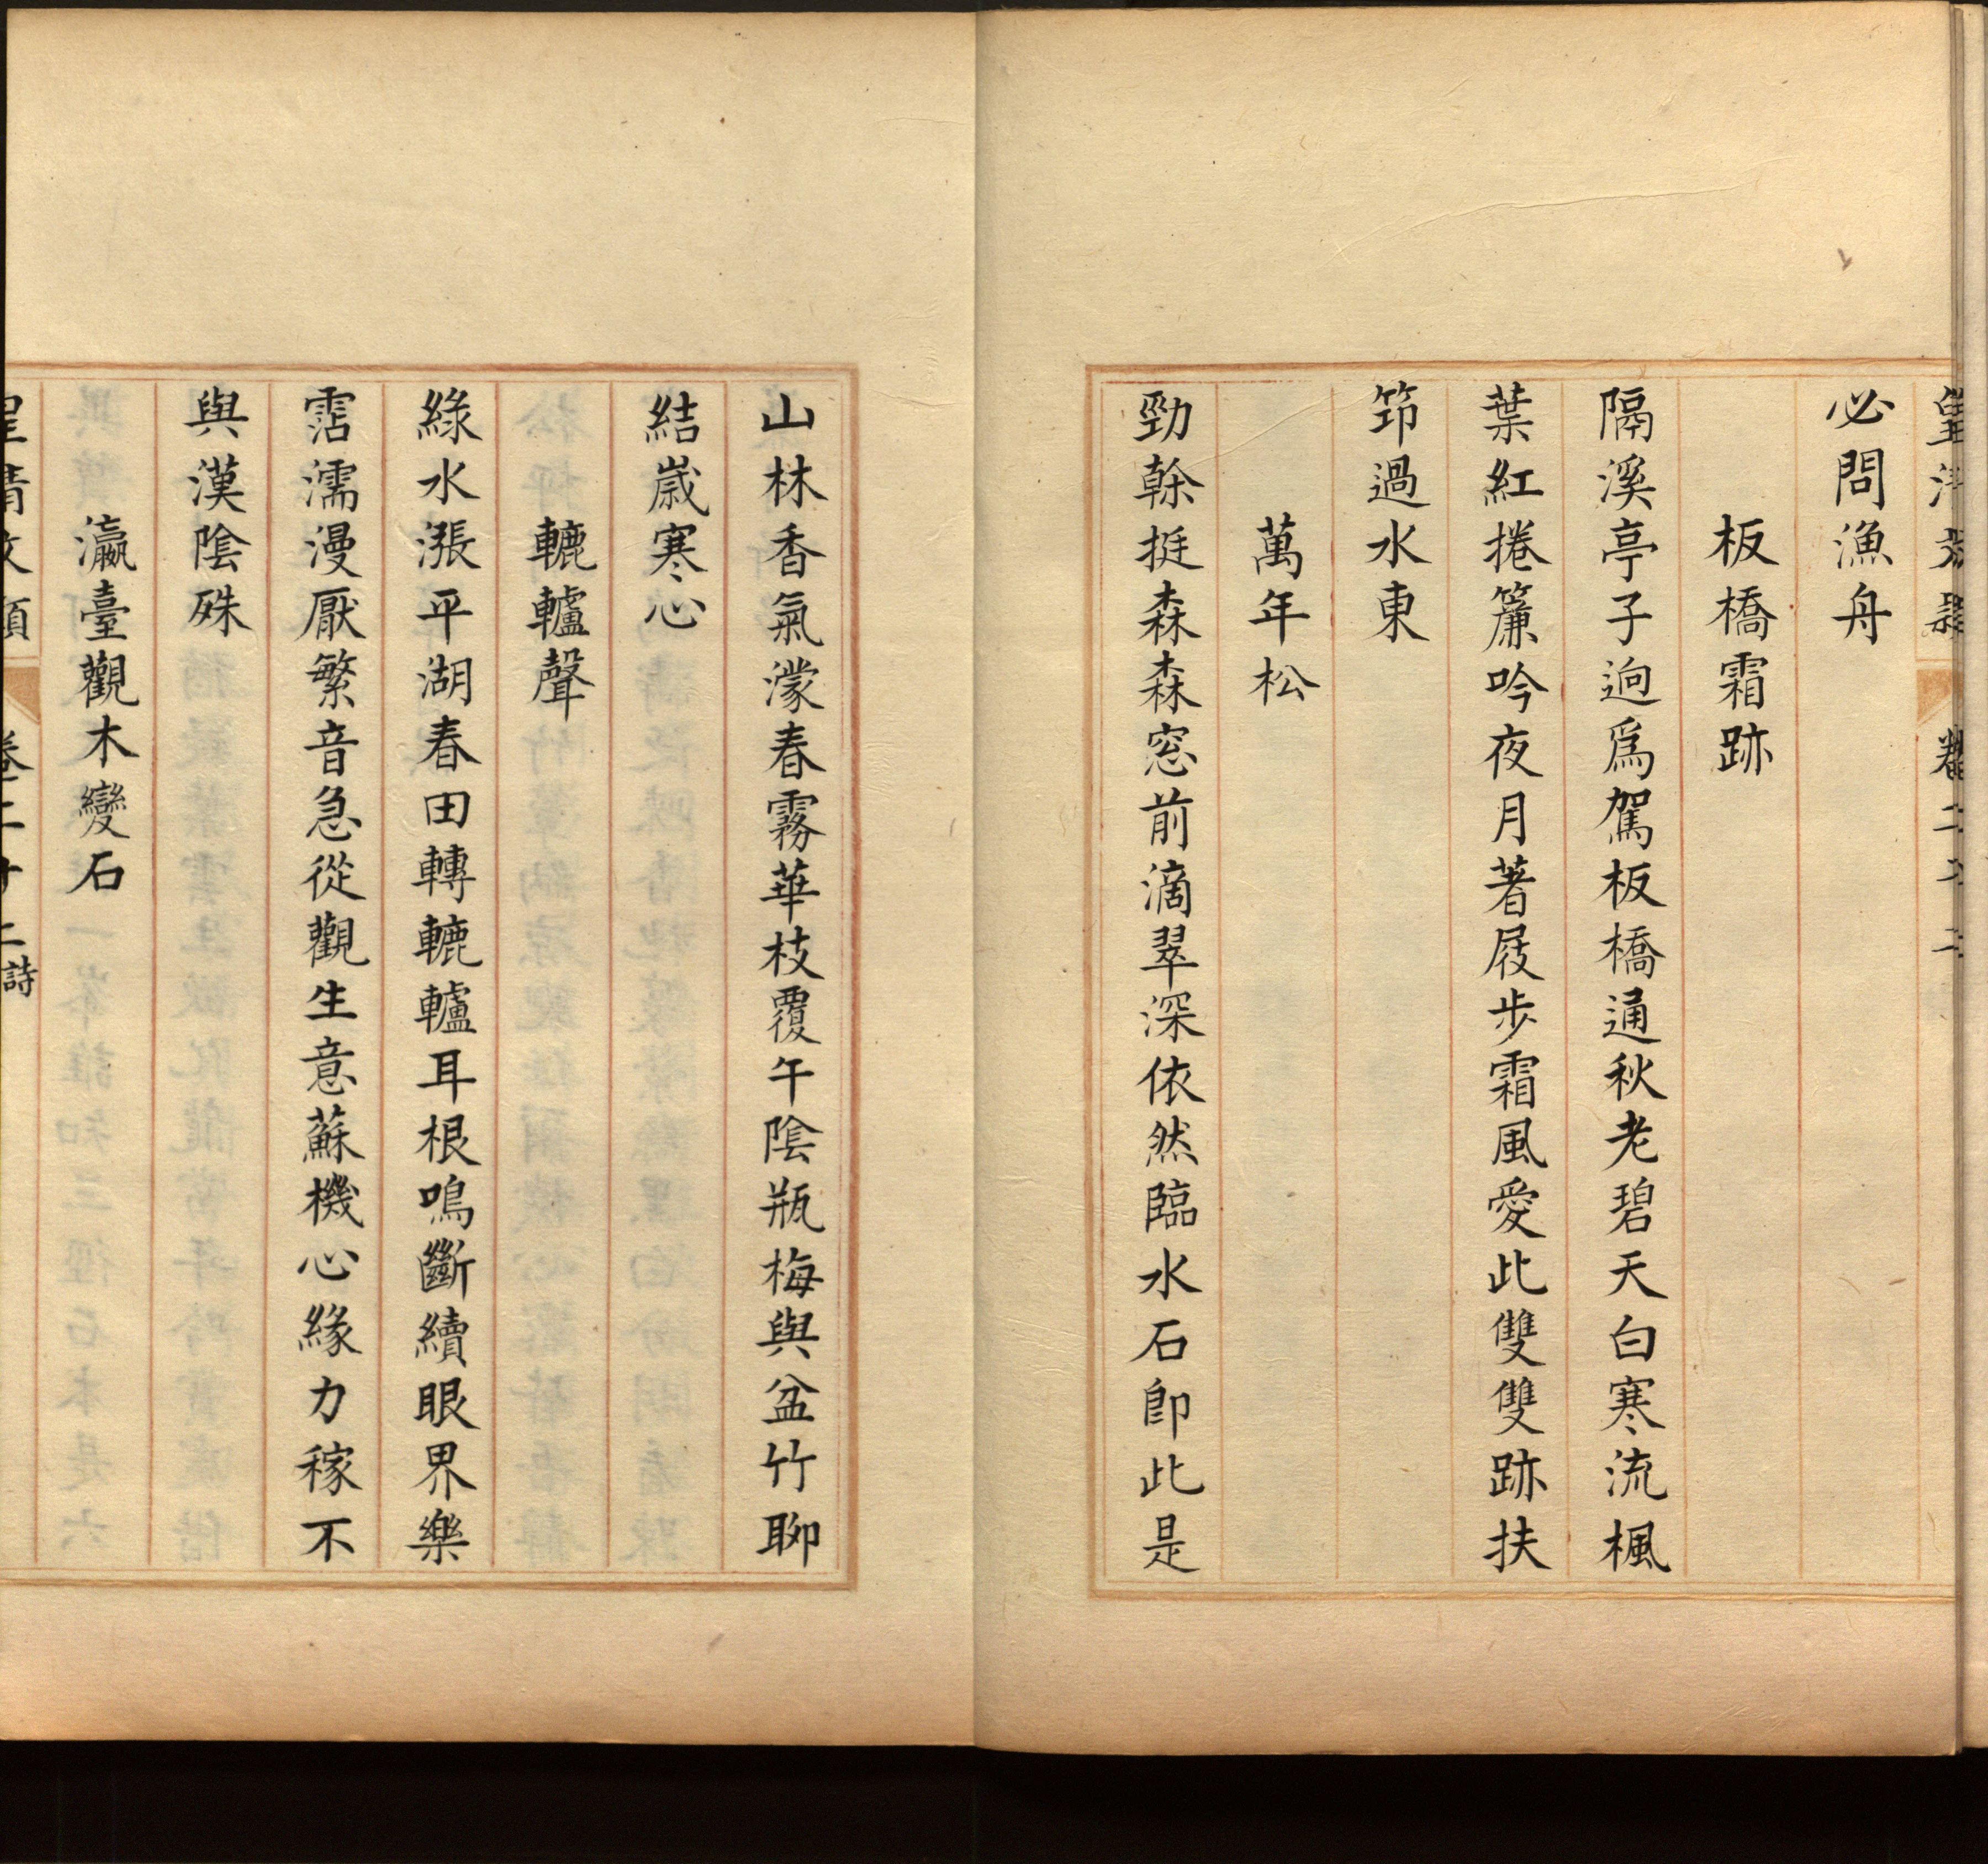 必問漁舟
板橋霜跡
隔溪亭子逈爲駕板橋通秋老碧天白寒流楓
葉紅捲簾吟夜月著屐步霜風愛此雙雙跡扶
筇過水東
萬年松
勁榦挺森森窓前滴翠深依然臨水石卽此是
山林香氣濛春霧華枝覆午陰瓶梅與盆竹聊
結歲寒心
轆轤聲
綠水漲平湖春田轉轆轤耳根鳴斷續眼界樂
霑濡漫厭繁音急從觀生意蘇機心緣力稼不
與漢陰殊
瀛臺觀木變石
皇清文穎 卷二十二詩